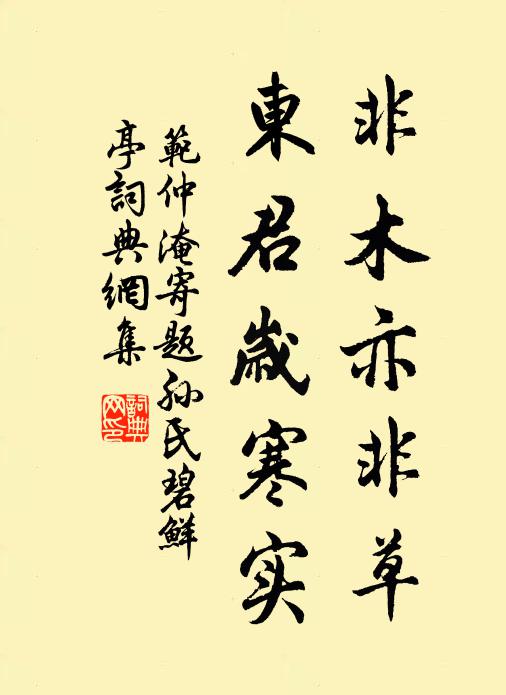 非木亦非草
東君歲寒实
範仲淹寄題孙氏碧鮮
亭詞典網集
詞典网印